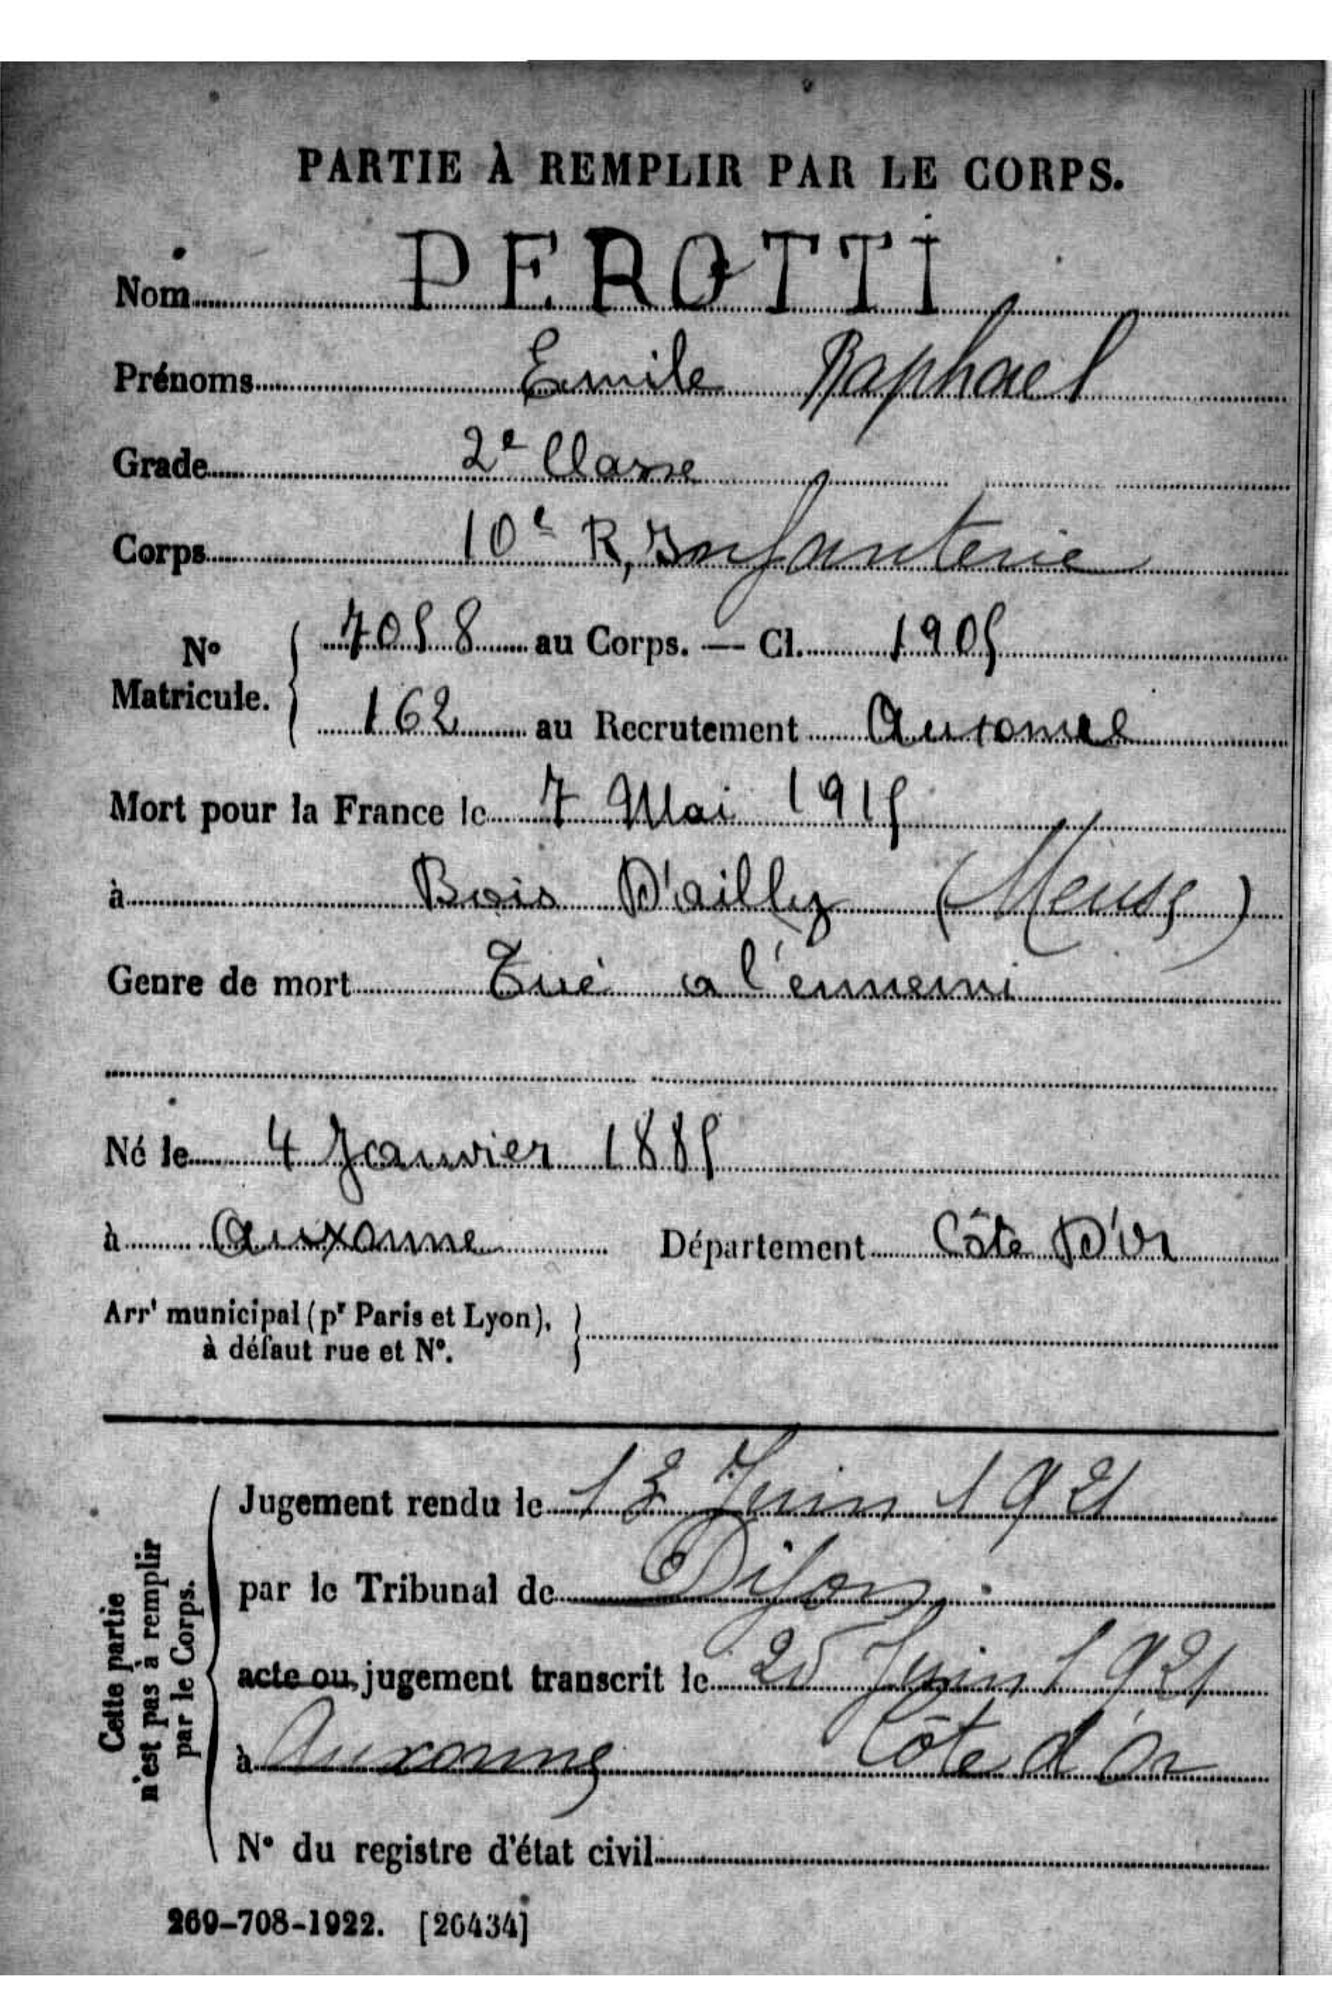 PARTIE À REMPLIR PAR LE CORPS.
Nom PEROTTI
Prénoms Emile Raphael
Grade 2e Classe
Corps 10e R, Infanterie
N° Matricule. { 7058 au Corps. — Cl. 1905
162 au Recrutement Auxonne
Mort pour la France le 7 Mai 1915
à Bois D'ailly (Meuse)
Genre de mort Tué a l'ennemi
Né le 4 Janvier 1885
à Auxonne Département Côte D'Or
Arrt municipal (pr Paris et Lyon), }
à défaut rue et N°.
Cette partie
n'est pas à remplir
par le Corps.
Jugement rendu le Juin 1921
par le Tribunal de Dijon
acte ou jugement transcrit le 25 Juin 1921
à Auxonne Côte d'Or
N° du registre d'état civil
269-708-1922. [26434]